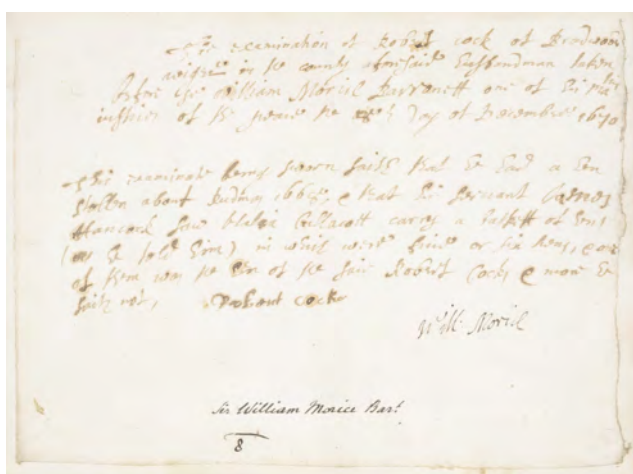 The examination of Robert Cock of Brodwood
widger in the county aforesaid husbandman taken
before Sr William Morice Barronett one of his ma:ties
iustices of the peace the day of December 1670
This examinate being sworn saith that he had a hen
stollen about 1668, & that his servant James
Hancock saw Collacott carry a baskett of hens
(as he told him) in which were five or six hens, & one
of them was the hen of the said Robert Cock, & more he
saith not, Robeart cocke
Will: Morice
Sir William Morice Bart
8